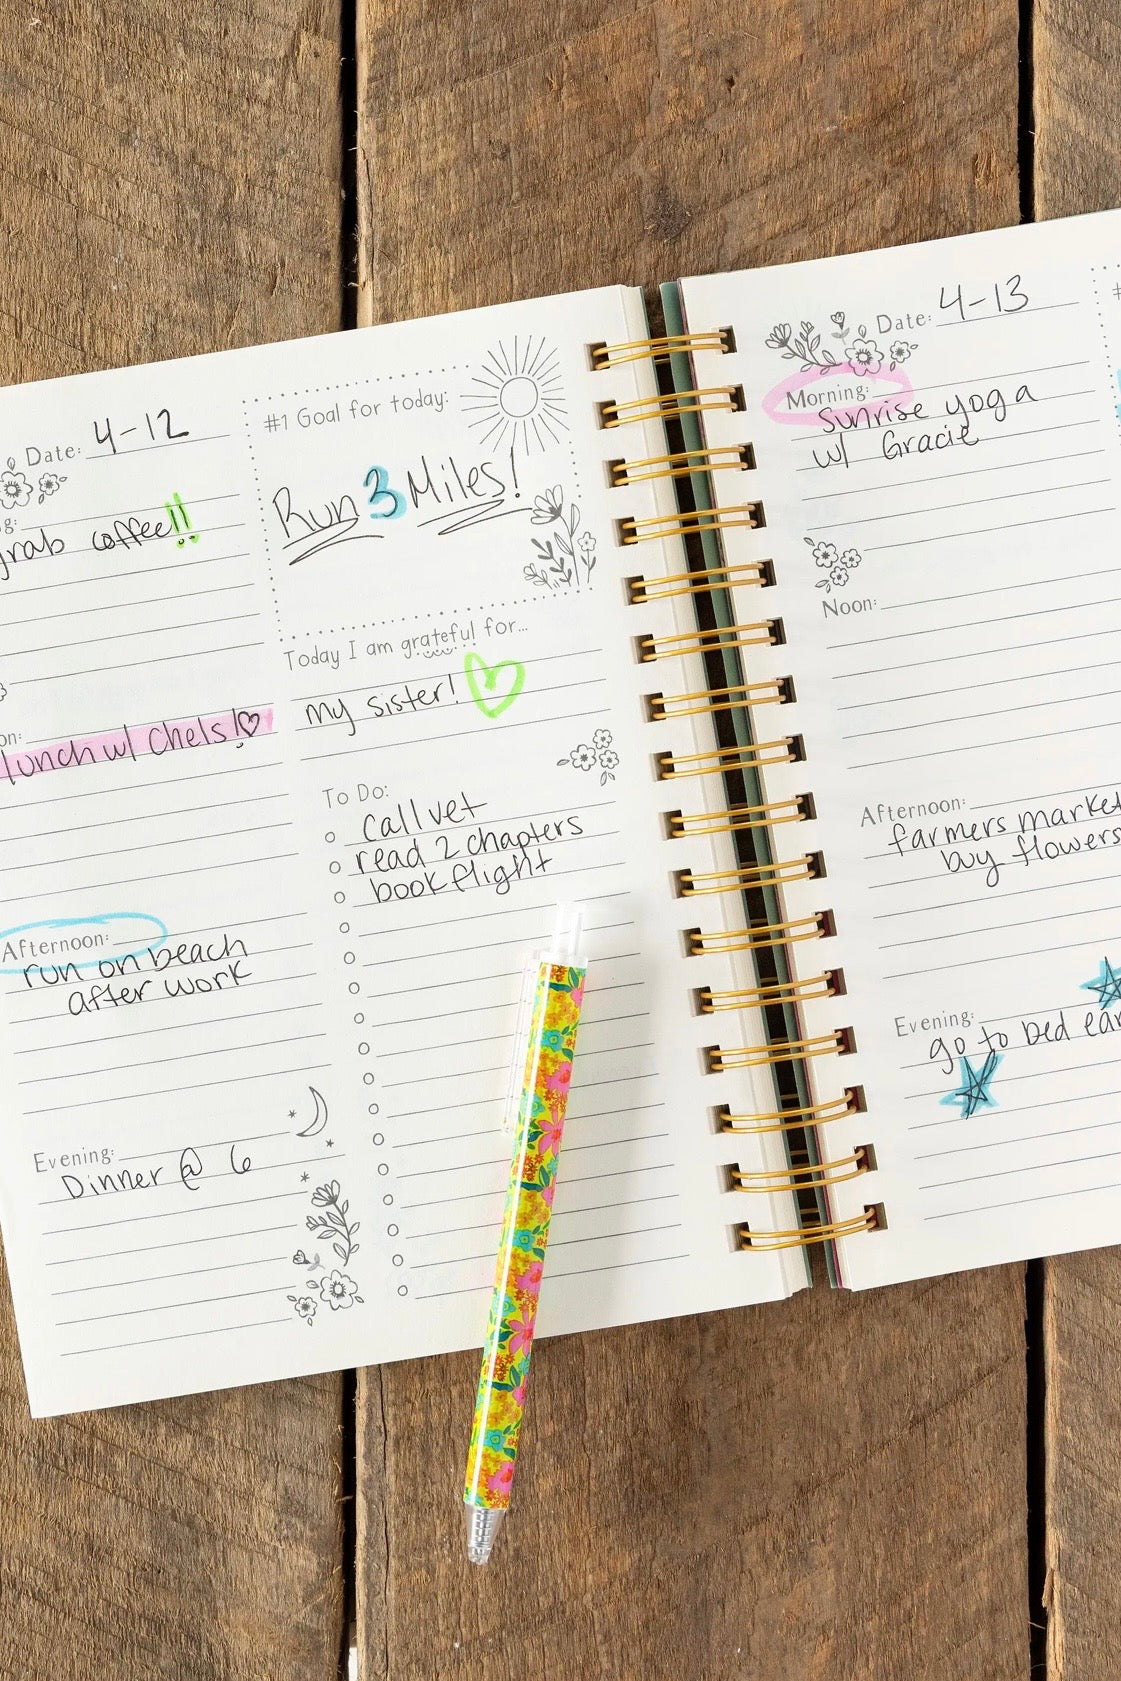 Date: 4-12
grab coffee!!
lunch w/ Chels!
Afternoon:
run on beach
after work
Evening:
Dinner @ 6
#1 Goal for today:
Run 3 Miles!
Today I am grateful for...
my sister!
To Do:
call vet
read 2 chapters
book flight
Date: 4-13
Morning:
Sunrise yoga
w/ Gracie
Noon:
Afternoon:
farmers market
buy flowers
Evening:
go to bed